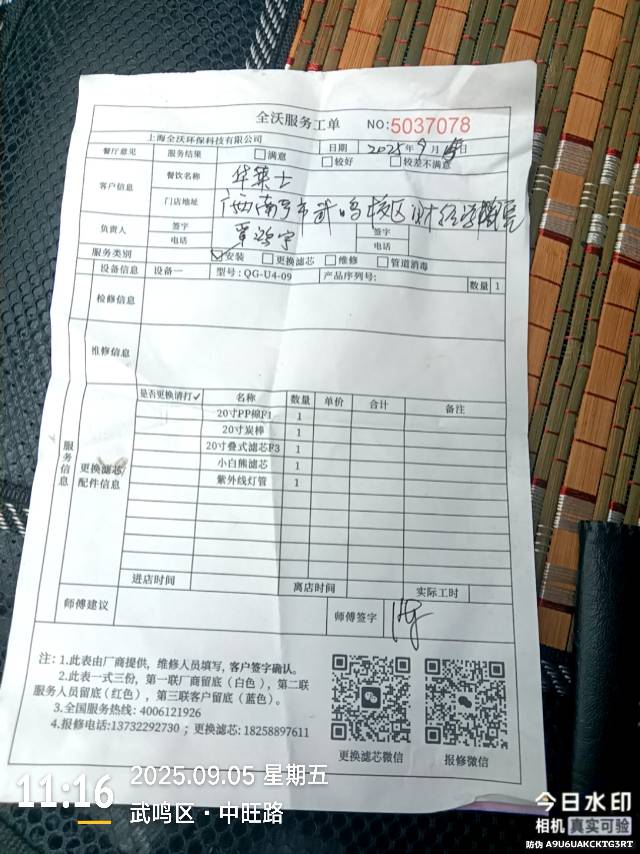 全沃服务工单 NO:5037078
上海全沃环保科技有限公司 日期 2025年9月 日
餐厅意见 服务结果 满意 较好 较差不满意
客户信息 餐饮名称 华莱士
门店地址 广西南宁市武鸣校区财经学院
负责人 签字 覃 宇 签字
电话 电话
服务类别 安装 更换滤芯 维修 管道消毒
设备信息 设备一 型号:QG-U4-09 产品序列号: 数量 1
检修信息
维修信息
服务信息 更换滤芯/配件信息
是否更换请打✓ 名称 数量 单价 合计 备注
20寸PP棉F1 1
20寸炭棒 1
20寸叠式滤芯F3 1
小白熊滤芯 1
紫外线灯管 1
进店时间 离店时间 实际工时
师傅建议 师傅签字
注: 1.此表由厂商提供, 维修人员填写, 客户签字确认。
2.此表一式三份, 第一联厂商留底(白色), 第二联
服务人员留底(红色), 第三联客户留底(蓝色)。
3.全国服务热线: 4006121926
4.报修电话:13732292730 ; 更换滤芯: 18258897611
更换滤芯微信 报修微信
11:16 2025.09.05 星期五
武鸣区·中旺路
今日水印
相机 真实可验
防伪 A9U6UAKCKTG3RT